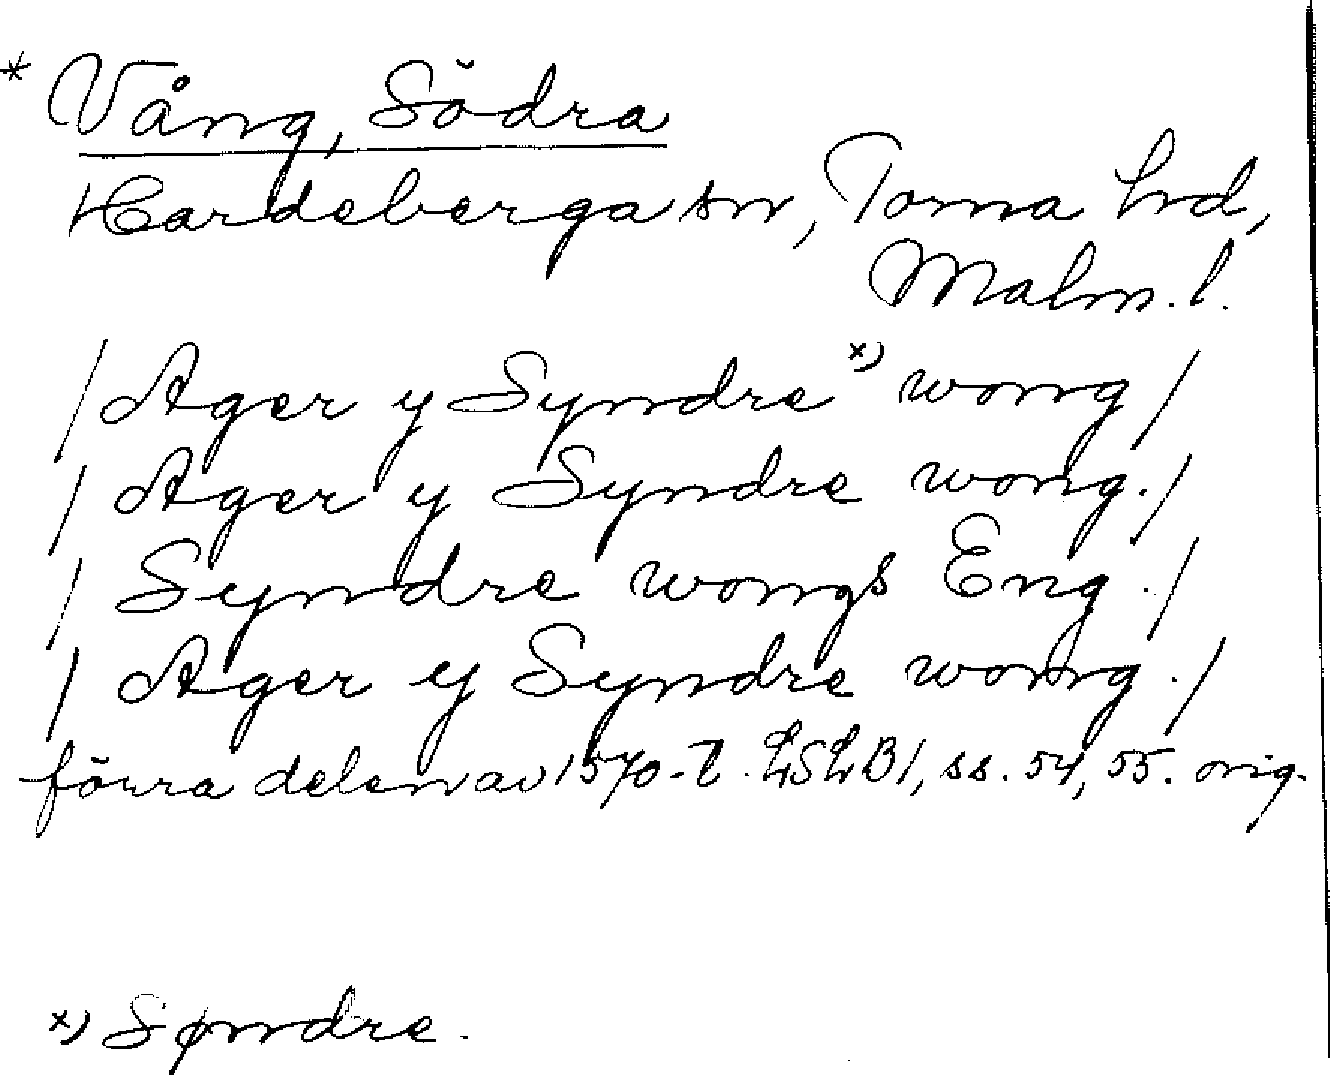 * Vång, Södra
Hardeberga sn, Torna hrd,
Malm. l.
/ Ager y Syndre x) wong /
/ Ager y Syndre wong. /
/ Syndre wongs Eng. /
/ Ager y Syndre wong. /
förra delen av 1570-t. LSLB 1, ss. 54, 55. orig.
x) Søndre.